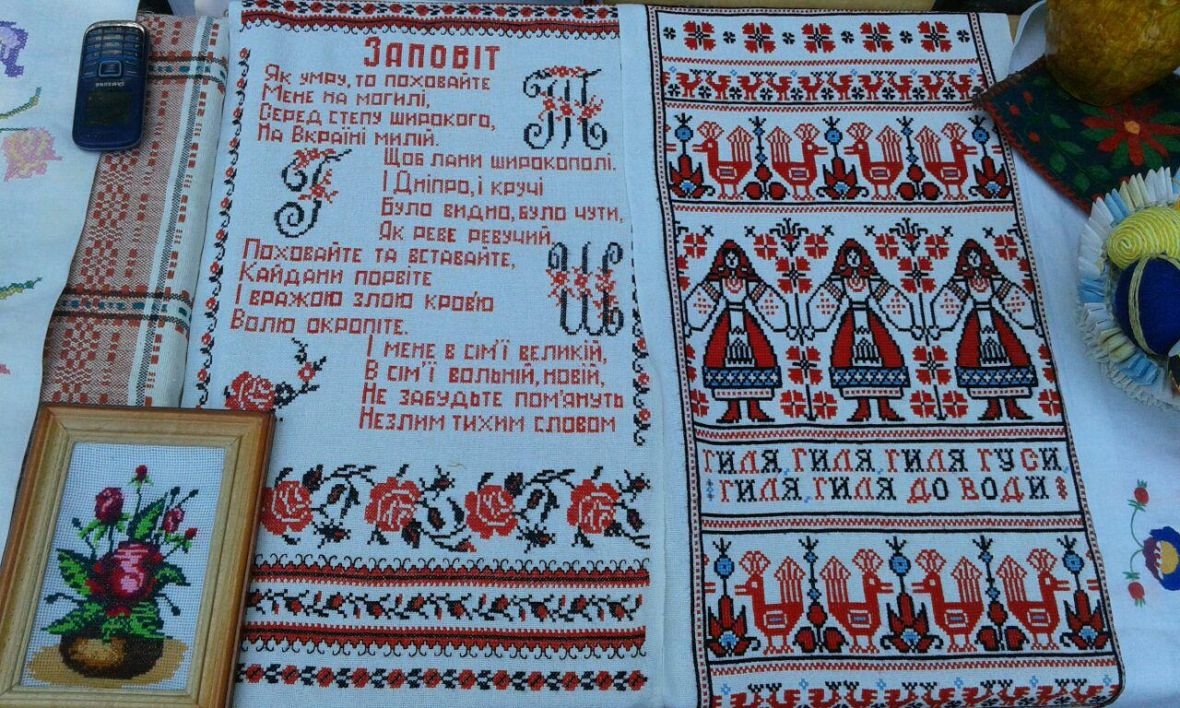 SAMSUNG
Заповіт
Як умру, то поховайте
Мене на могилі,
Серед степу широкого,
На Вкраїні милій.
Щоб лани широкополі.
І Дніпро, і кручі
Було видно, було чути,
Як реве ревучий.
Поховайте та вставайте,
Кайдани порвіте
І вражою злою кров'ю
Волю окропіте.
І мене в сім'ї великій,
В сім'ї вольній, новій,
Не забудьте пом'януть
Незлим тихим словом
Т
Г
Ш
Гиля, гиля, гиля гуси,
Гиля, гиля до води